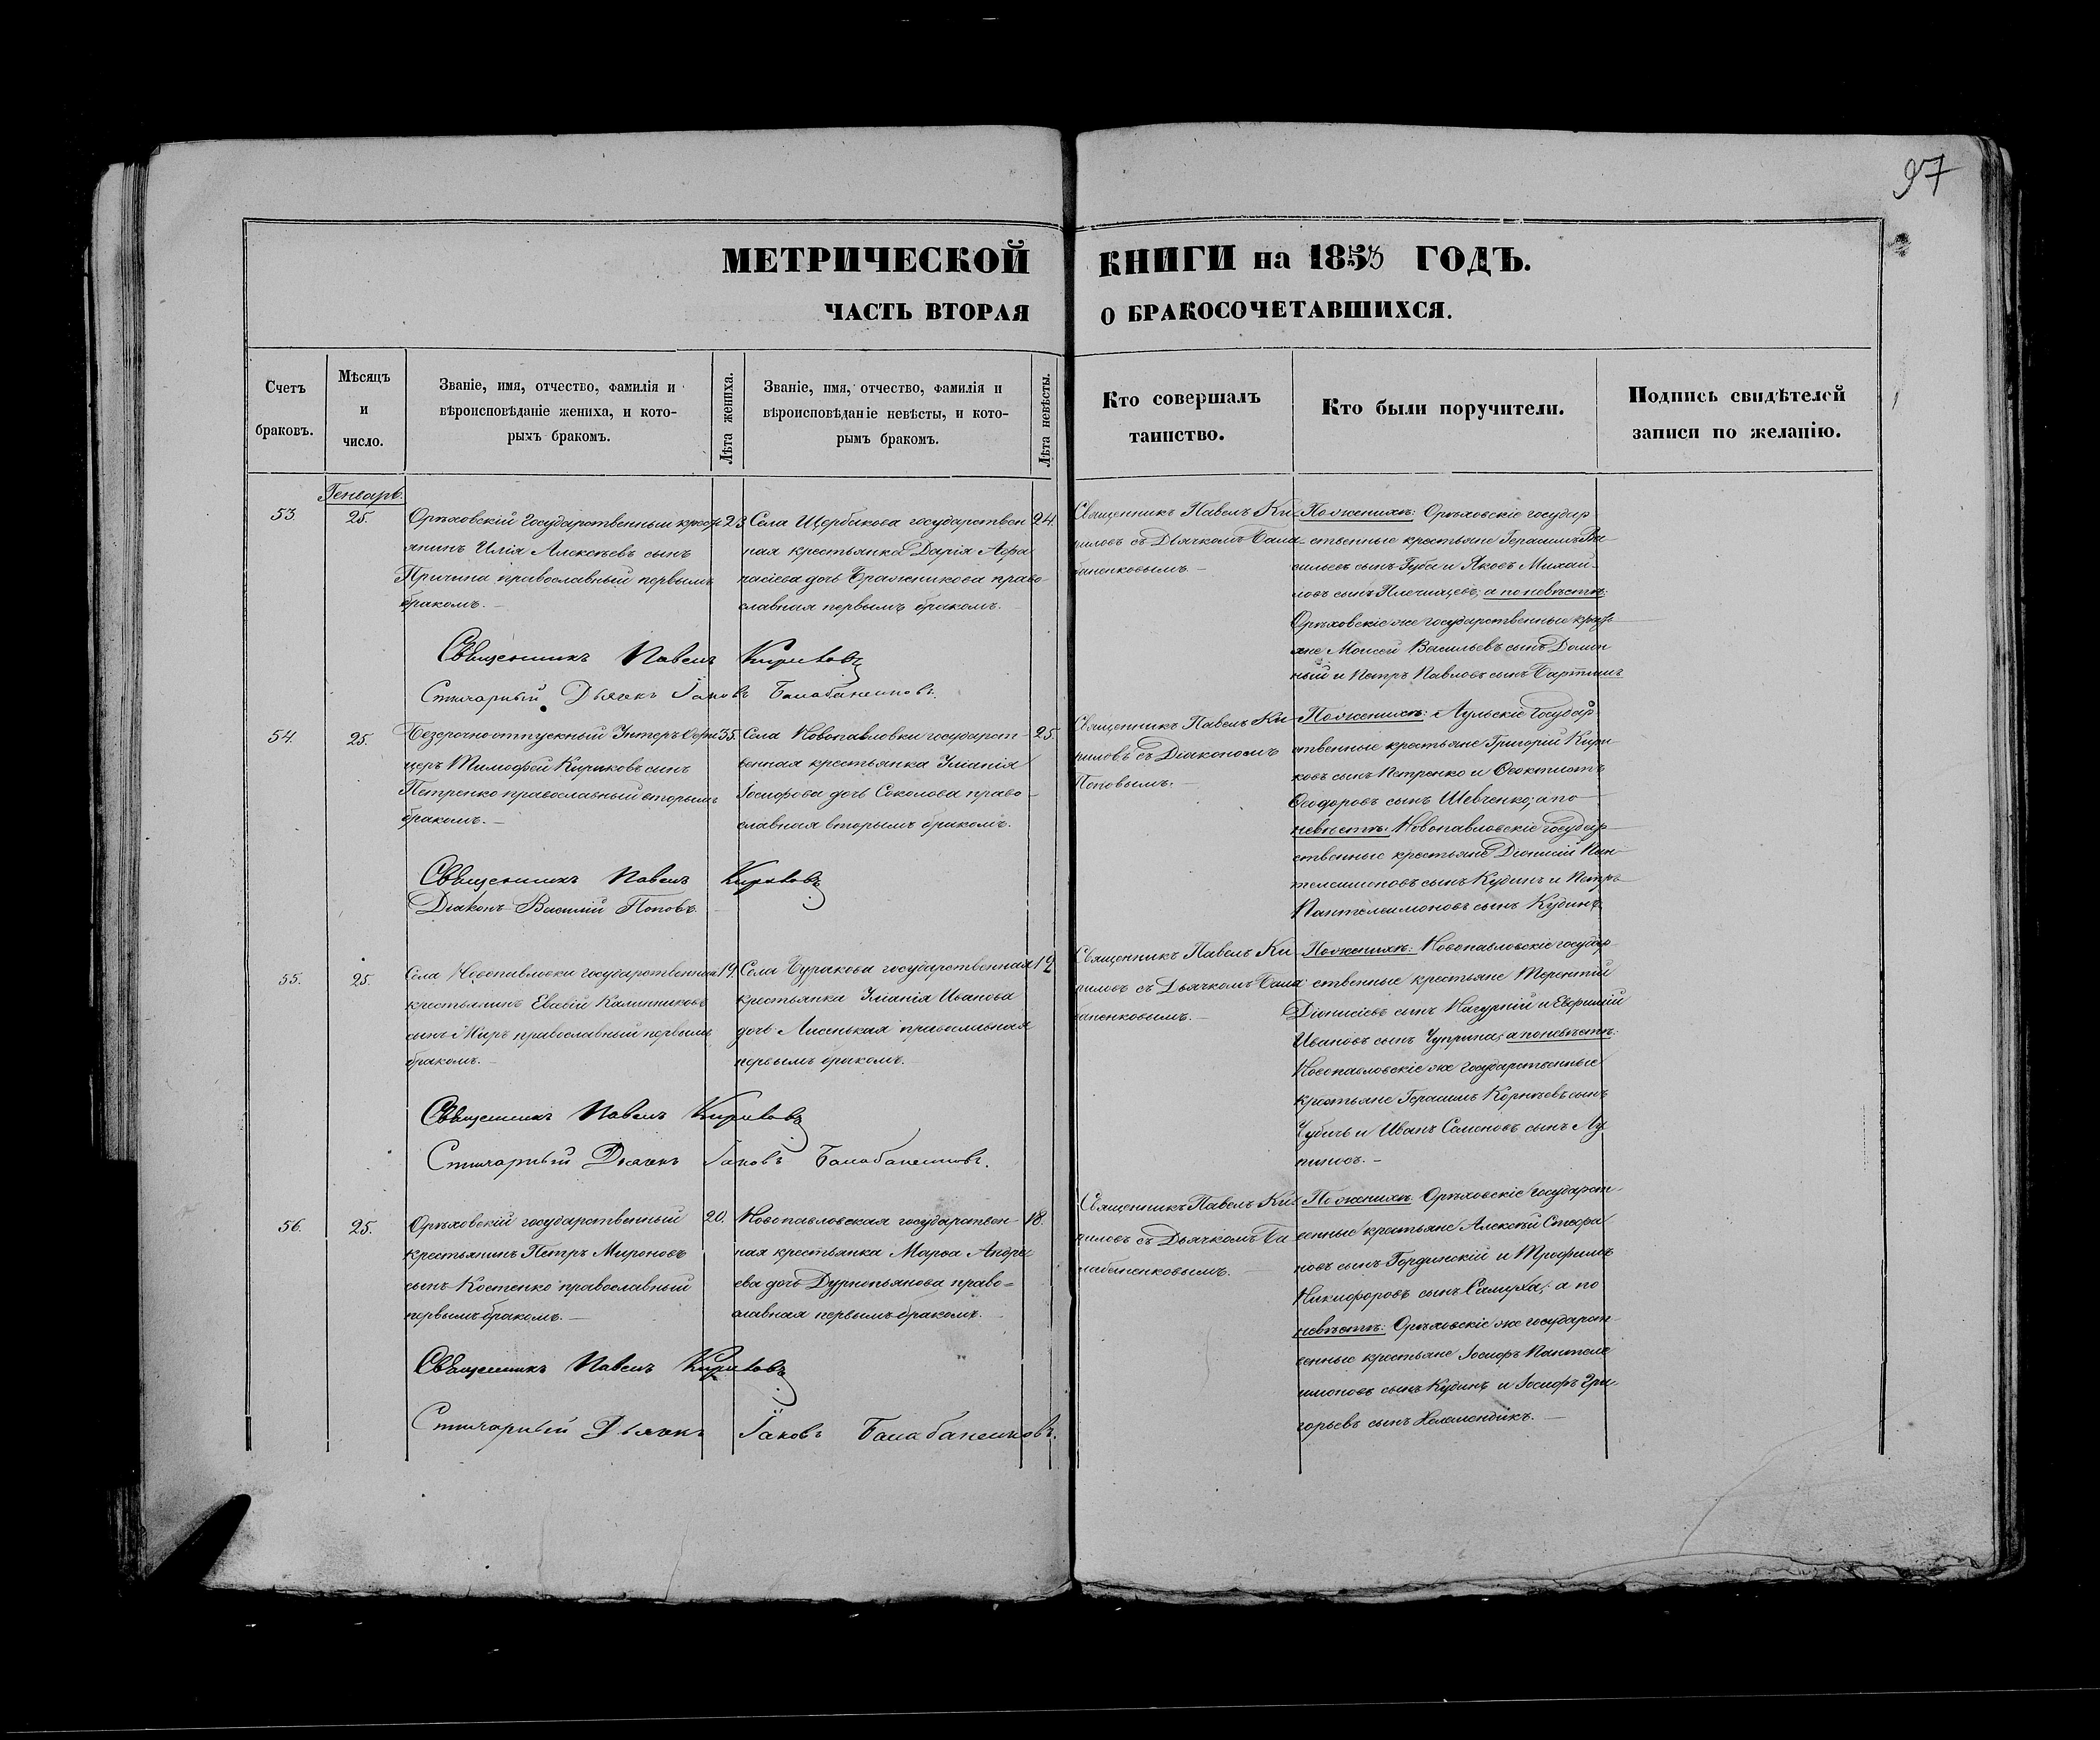 97
МЕТРИЧЕСКОЙ КНИГИ на 1853 ГОДЪ.
ЧАСТЬ ВТОРАЯ О БРАКОСОЧЕТАВШИХСЯ.
Счетъ
браковъ.
Мѣсяцъ
и
число.
Званіе, имя, отчество, фамилія и
вѣроисповѣданіе жениха, и кото-
рымъ бракомъ.
Лѣта жениха.
Званіе, имя, отчество, фамилія и
вѣроисповѣданіе невѣсты, и кото-
рымъ бракомъ.
Лѣта невѣсты.
Кто совершалъ
таинство.
Кто были поручители.
Подпись свидѣтелей
записи по желанію.
Генварь.
53.
25.
Орѣховскій государственный кресть
янинъ Илія Алексѣевъ сынъ
Причина православный первымъ
бракомъ.
23
Села Щербакова государствен
ная крестьянка Дарія Афа
насіева дочь Бражникова право-
славная первымъ бракомъ.
24.
Священникъ Павелъ Ки-
риловъ съ Дьячкомъ Бала-
баненковымъ.
По женихѣ: Орѣховскіе государ
ственные крестьяне Герасимъ Ва
сильевъ сынъ Губа и Яковъ Михай-
ловъ сынъ а по невѣстѣ:
Орѣховскіе же государственные кресть
яне Моисей Васильевъ сынъ Долин
ный и Петръ Павловъ сынъ
Священникъ Павелъ Кириловъ
Стихарный Дьячекъ Іаковъ Балабаненковъ.
54.
25.
Безсрочноотпускный Унтеръ Офи
церъ Тимофей Кириковъ сынъ
Петренко православный вторымъ
бракомъ.
35.
Села Новопавловки государст-
венная крестьянка Уліанія
Іосифова дочь Соколова право-
славная вторымъ бракомъ.
25.
Священникъ Павелъ Ки-
риловъ съ Діакономъ
Поповымъ.
По женихѣ: Аульскіе государ
ственные крестьяне Григорій Кири-
ковъ сынъ Петренко и Феоктистъ
Феодоровъ сынъ Шевченко; а по
невѣстѣ: Новопавловскіе государ-
ственные крестьяне Діонисій Пан-
телеимоновъ сынъ Кудинъ и Петръ
Пантелеимоновъ сынъ Кудинъ.
Священникъ Павелъ Кириловъ
Діаконъ Василій Поповъ.
55.
25.
Села Новопавловки государственный
крестьянинъ Евсевій Калинниковъ
сынъ православный первымъ
бракомъ.
19.
Села Буракова государственная
крестьянка Уліанія Иванова
дочь Лисенькая православная
первымъ бракомъ.
Священникъ Павелъ Ки
риловъ съ Дьячкомъ Бала
баненковымъ.
По женихѣ: Новопавловскіе государ-
ственные крестьяне Терентій
Діонисіевъ сынъ Нагурній и Евфимій
Ивановъ сынъ Чуприна; а по невѣстѣ:
Новопавловскіе же государственные
крестьяне Герасимъ Корнѣевъ сынъ
и Иванъ Семеновъ сынъ Лу
пиносъ.
Священникъ Павелъ Кириловъ
Стихарный Дьячекъ Іаковъ Балабаненковъ.
56.
25.
Орѣховскій государственный
крестьянинъ Петръ Мироновъ
сынъ Костенко православный
первымъ бракомъ.
20.
Новопавловская государствен-
ная крестьянка Марфа Андре
ева дочь Дурнопьянова право-
славная первымъ бракомъ.
18.
Священникъ Павелъ Ки-
риловъ съ Дьячкомъ Ба
лабаненковымъ.
По женихѣ: Орѣховскіе государст-
венные крестьяне Алексѣй Стефа
новъ сынъ Гординскій и Трофимъ
Никифоровъ сынъ Самуха; а по
невѣстѣ: Орѣховскіе же государст-
венные крестьяне Іосифъ Пантеле
имоновъ сынъ Кудинъ и Іосифъ Гри-
горьевъ сынъ
Священникъ Павелъ Кириловъ
Стихарный Дьячекъ Іаковъ Балабаненковъ.